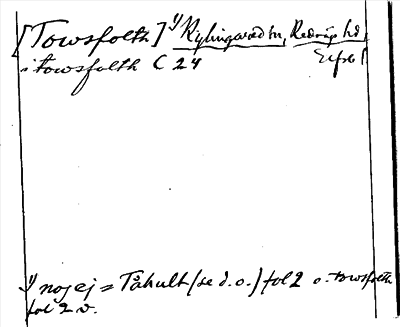 [Towsfolth] y Rylingaredh, Redväg hd,
i towsfolth C 24
y nog ej = Tåhult (se d.o.) fol 2 o. towsfolth
fol 2 v.